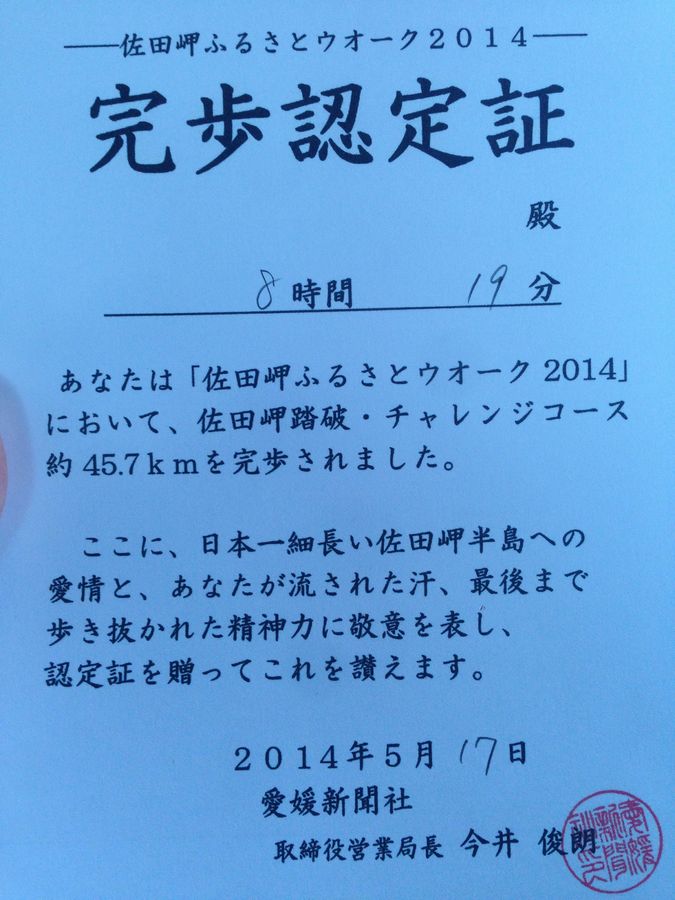 佐田岬ふるさとウオーク2014
完歩認定証
殿
8時間 19分
あなたは「佐田岬ふるさとウオーク2014」
において、佐田岬踏破・チャレンジコース
約45.7kmを完歩されました。
ここに、日本一細長い佐田岬半島への
愛情と、あなたが流された汗、最後まで
歩き抜かれた精神力に敬意を表し、
認定証を贈ってこれを讃えます。
2014年5月17日
愛媛新聞社
取締役営業局長 今井 俊朗